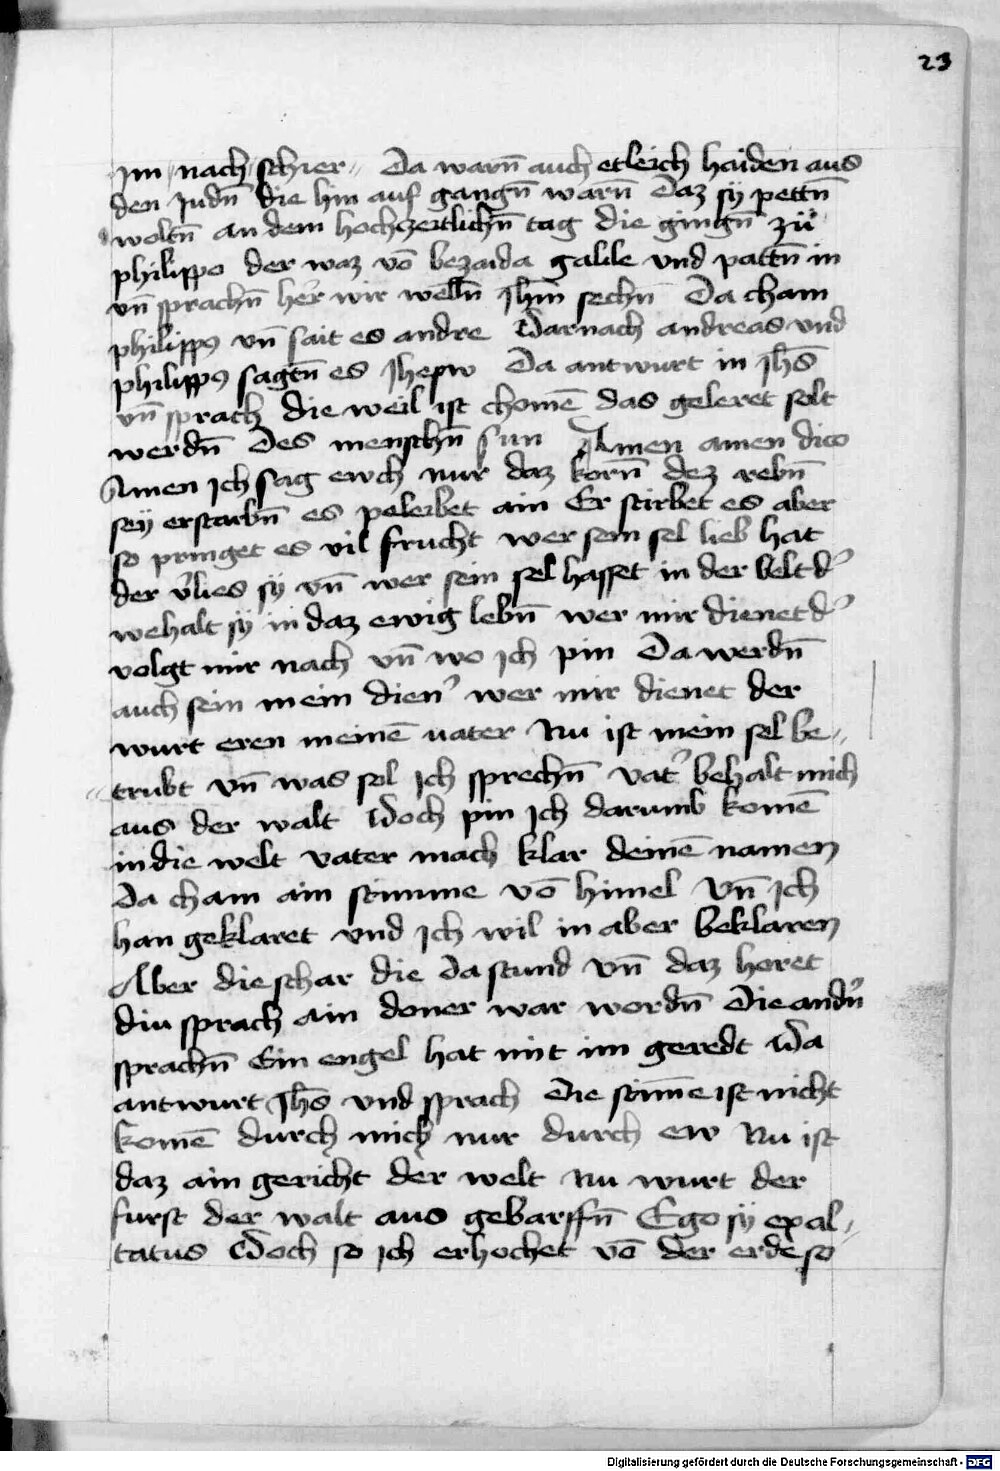 23
im nach schier Da warn̄ auch etleich haiden aus
den Judn̄ die hin auf gangn̄ warn̄ Daz sy pettn̄
woltn̄ an dem hochzeitlichn̄ tag die gingn̄ zů
philippo der waz vō bezaida galile vnd pattn̄ in
vn̄ sprachn̄ her wir welln̄ Jhm̄ sechn̄ Da cham
philippꝰ vn̄ sait es andre Darnach andreas vnd
philippꝰ sagtn̄ es Jhesu Da antwurt in Jhs̄
vn̄ sprach die weil ist chomē das geleret solt
werdn̄ Des menschn̄ sun Amen amen dico
Amen Ich sag ewch nur daz korn̄ dez rebn̄
sey erstarbn̄ es peleibet ain Er stirbet es aber
so pringet es vil frucht wer sein sel lieb hat
der v̓lies sy vn̄ wer sein sel hasset in der belt d̓
wehalt sy in daz ewig lebn̄ wer mir dienet d̓
volgt mir nach vn̄ wo ich pin Da werdn̄
auch sein mein dien̓ wer mir dienet der
wurt eren meinē vater Nu ist mein sel be〃
〃trubt vn̄ was sol Ich sprechn̄ vat̓ behalt mich
aus der walt Doch pin Ich darumb komē
in die welt vater mach klar deinē namen
Da cham ain stimme vō himel Vn̄ Ich
han geklaret vnd Ich wil in aber beklaren
Aber die schar die da stund Vn̄ daz horet
diu sprach ain doner war wordn̄ Die andn̓
sprachn̄ Ein engel hat mit im geredt Da
antwurt Jhs̄ vnd sprach Die stim̄e ist nicht
komē durch mich nur durch ew Nu ist
daz ain gericht der welt Nu wurt der
furst der walt aus gebarffn̄ Ego sy exal〃
tatus Doch so ich erhochet vō der erde so
Digitalisierung gefördert durch die Deutsche Forschungsgemeinschaft - DFG